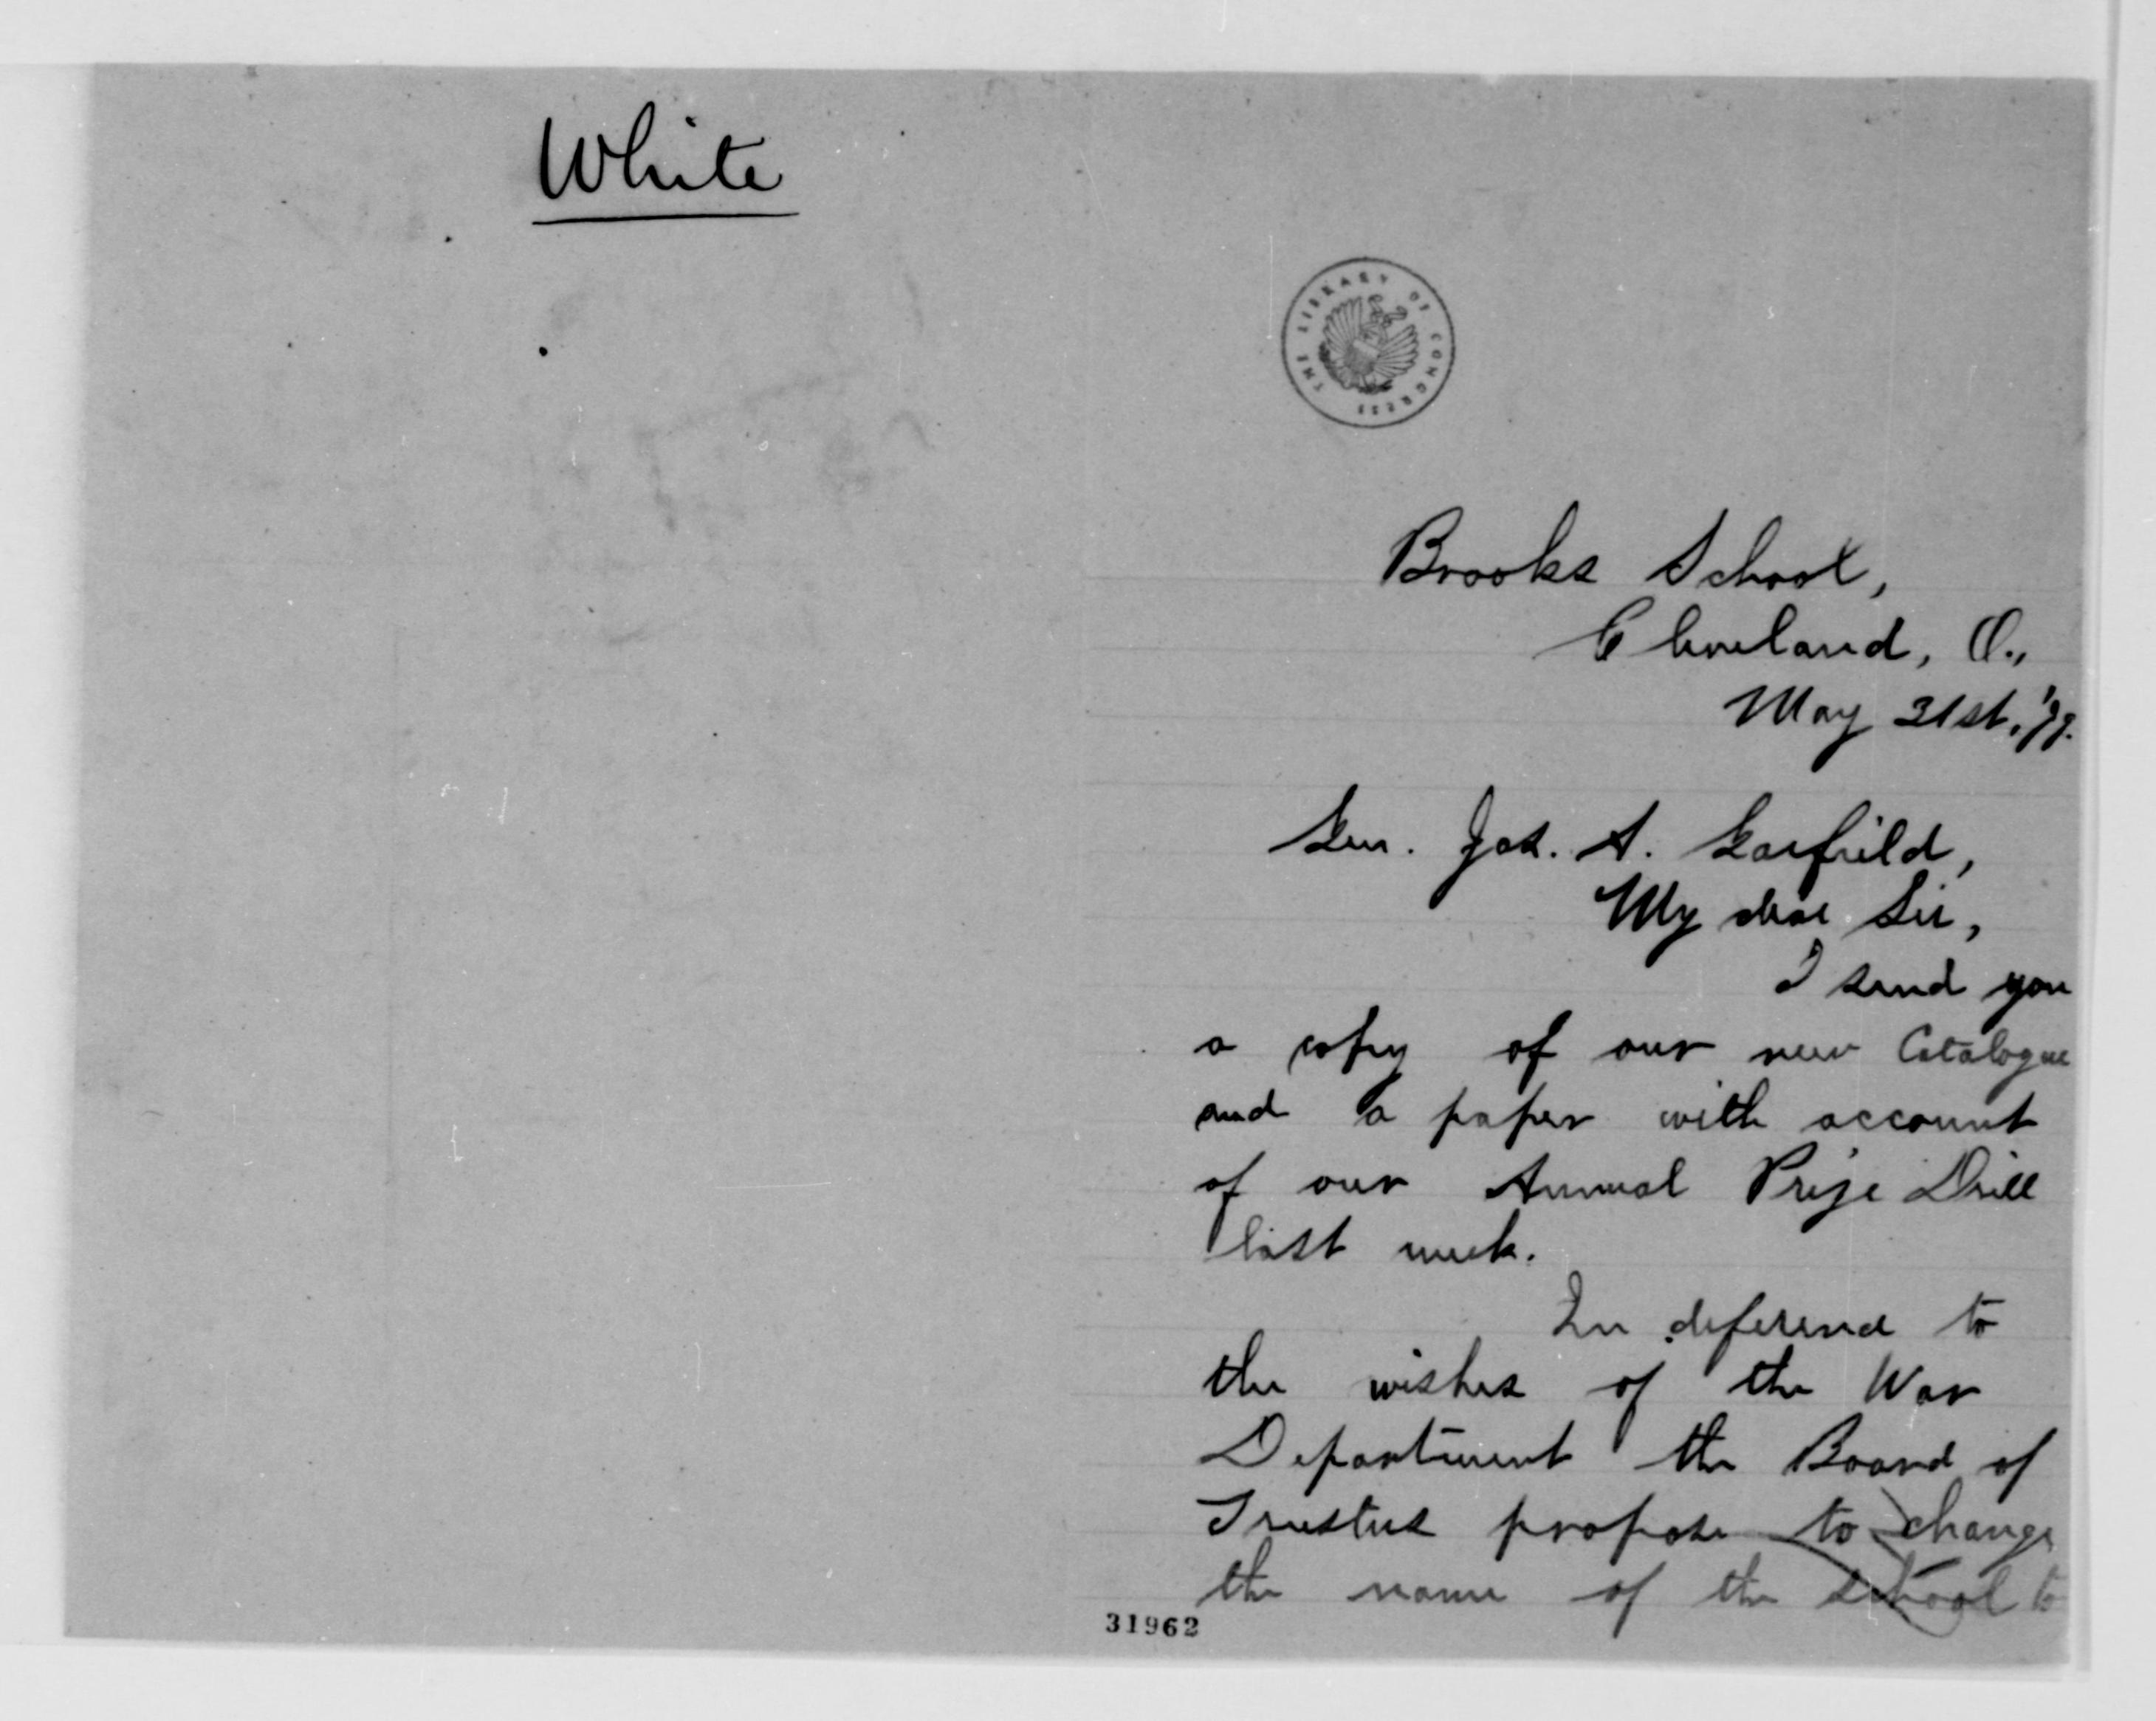 White
THE LIBRARY OF CONGRESS
Brooks School,
Cleveland, O.,
May 31st, '79.
Gen. Jas. A. Garfield,
My dear Sir,
I send you
a copy of our new Catalogue
and a paper with account
of our Annual Prize Drill
last week.
In deference to
the wishes of the War
Department the Board of
Trustees propose to change
the name of the school to
31962